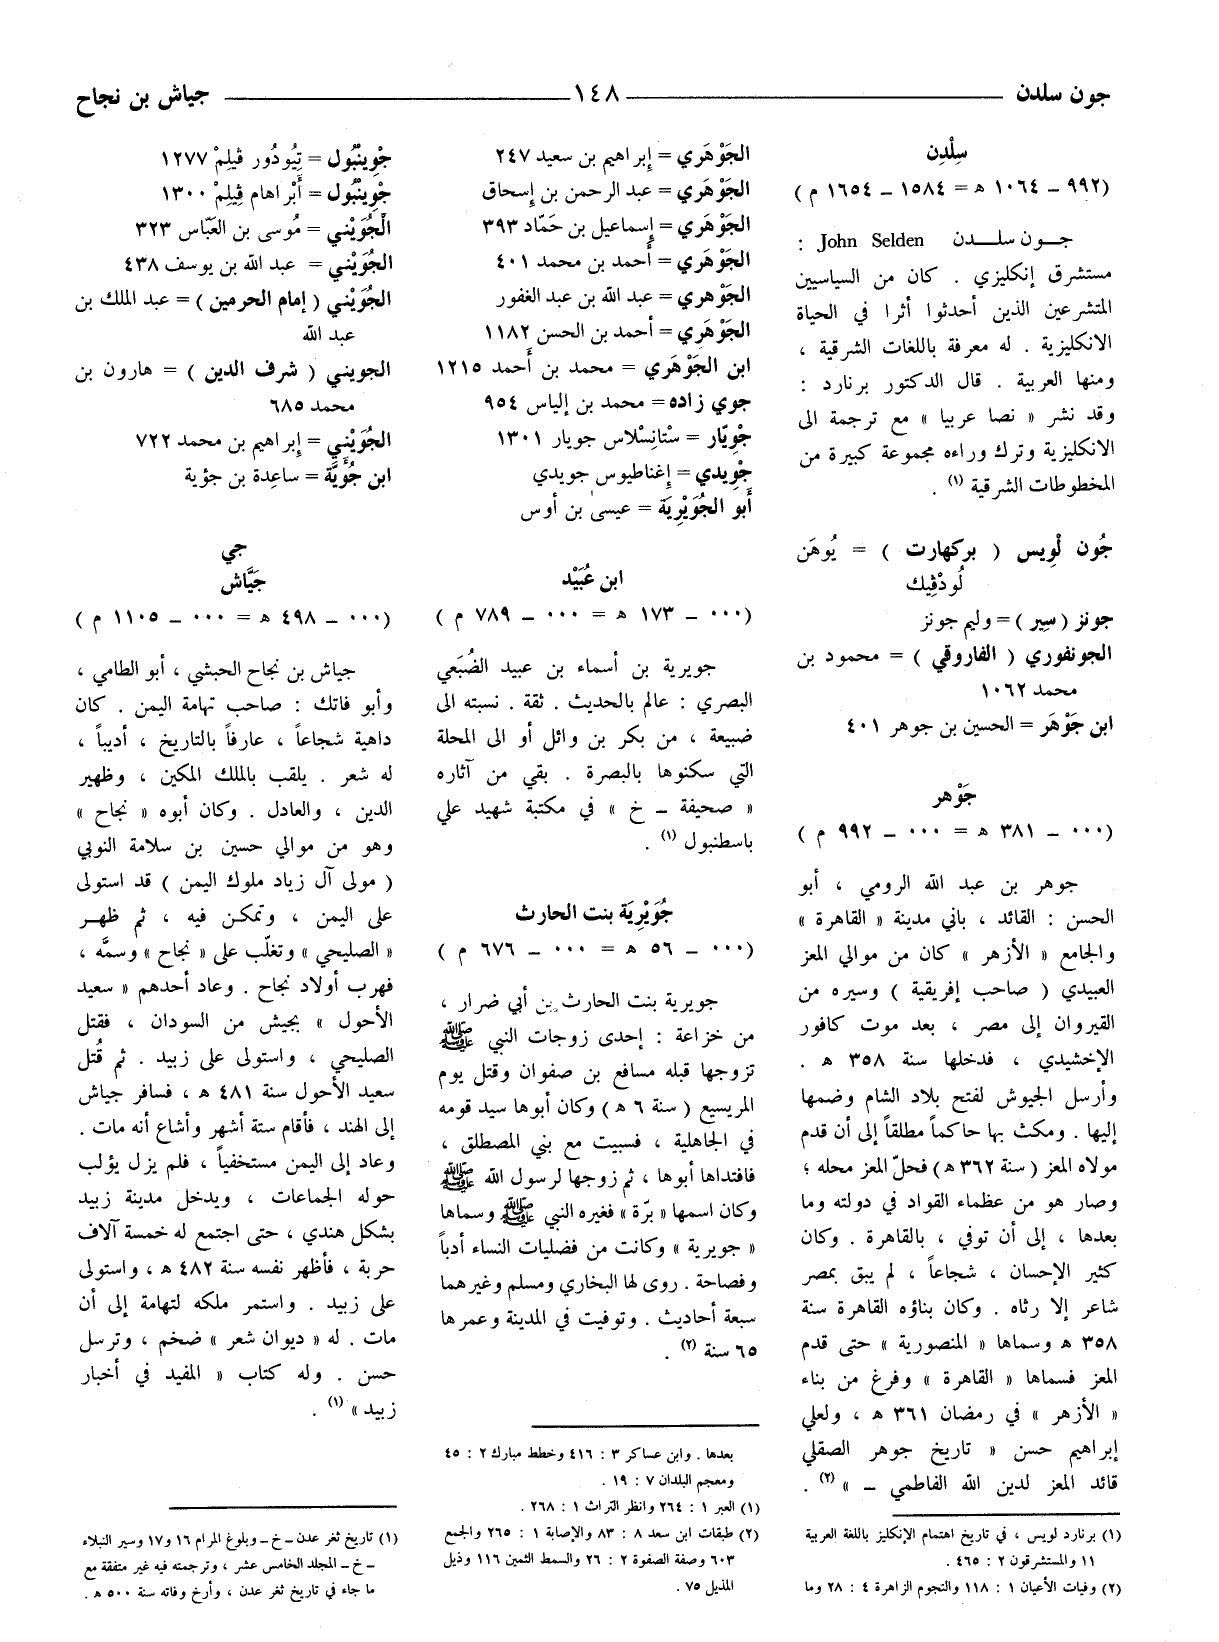 جون سلدن ١٤٨ جياش بن نجاح
سِلْدِن
(٩٩٢ – ١٠٦٤ ه‍ = ١٥٨٤ – ١٦٥٤ م)
جـون سلـدن John Selden :
مستشرق إنكليزي . كان من السياسيين
المتشرعين الذين أحدثوا أثرا في الحياة
الانكليزية . له معرفة باللغات الشرقية ،
ومنها العربية . قال الدكتور برنارد :
وقد نشر « نصا عربيا » مع ترجمة الى
الانكليزية وترك وراءه مجموعة كبيرة من
المخطوطات الشرقية (١) .
جُون لْوِيس ( بركهارت ) = يُوهَن
لُودْڤِيك
جونز ( سِير ) = وليم جونز
الجونفوري ( الفاروقي ) = محمود بن
محمد ١٠٦٢
ابن جَوْهَر = الحسين بن جوهر ٤٠١
جَوْهر
(٠٠٠ – ٣٨١ ه‍ = ٠٠٠ – ٩٩٢ م )
جوهر بن عبد الله الرومي ، أبو
الحسن : القائد ، باني مدينة « القاهرة »
والجامع « الأزهر » كان من موالي المعز
العبيدي ( صاحب إفريقية ) وسيره من
القيروان إلى مصر ، بعد موت كافور
الإخشيدي ، فدخلها سنة ٣٥٨ ه‍ .
وأرسل الجيوش لفتح بلاد الشام وضمها
إليها . ومكث بها حاكماً مطلقاً إلى أن قدم
مولاه المعز ( سنة ٣٦٢ ه‍ ) فحلّ المعز محله ؛
وصار هو من عظماء القواد في دولته وما
بعدها ، إلى أن توفي ، بالقاهرة . وكان
كثير الإحسان ، شجاعاً ، لم يبق بمصر
شاعر إلا رثاه . وكان بناؤه القاهرة سنة
٣٥٨ ه‍ وسماها « المنصورية » حتى قدم
المعز فسماها « القاهرة » وفرغ من بناء
« الأزهر » في رمضان ٣٦١ ه‍ ، ولعلي
إبراهيم حسن « تاريخ جوهر الصقلي
قائد المعز لدين الله الفاطمي – » (٢) .
(١) برنارد لويس ، في تاريخ اهتمام الإنكليز باللغة العربية
١١ والمستشرقون ٢ : ٤٦٥ .
(٢) وفيات الأعيان ١ : ١١٨ والنجوم الزاهرة ٤ : ٢٨ وما
الجَوْهَري = إبراهيم بن سعيد ٢٤٧
الجَوْهَري = عبد الرحمن بن إسحاق
الجَوْهَري = إسماعيل بن حَمّاد ٣٩٣
الجَوْهَري = أحمد بن محمد ٤٠١
الجَوْهري = عبد الله بن عبد الغفور
الجَوْهَري = أحمد بن الحسن ١١٨٢
ابن الجَوْهَري = محمد بن أحمد ١٢١٥
جوي زاده = محمد بن إلياس ٩٥٤
جْويّار = سْتانِسْلاس جويار ١٣٠١
جْويدي = إغناطيوس جويدي
أبو الجُوَيْرِيَة = عيسىٰ بن أوس
ابن عُبَيْد
(٠٠٠ – ١٧٣ ه‍ = ٠٠٠ – ٧٨٩ م )
جويرية بن أسماء بن عبيد الضُبَعي
البصري : عالم بالحديث . ثقة . نسبته الى
ضبيعة ، من بكر بن وائل أو الى المحلة
التي سكنوها بالبصرة . بقي من آثاره
« صحيفة – خ » في مكتبة شهيد علي
باسطنبول (١) .
جُوَيْرِيَة بنت الحارث
(٠٠٠ – ٥٦ ه‍ = ٠٠٠ – ٦٧٦ م )
جويرية بنت الحارث بن أبي ضرار ،
من خزاعة : إحدى زوجات النبي ﷺ
تزوجها قبله مسافع بن صفوان وقتل يوم
المريسيع ( سنة ٦ ه‍ ) وكان أبوها سيد قومه
في الجاهلية ، فسبيت مع بني المصطلق ،
فافتداها أبوها ، ثم زوجها لرسول الله ﷺ
وكان اسمها « برّة » فغيره النبي ﷺ وسماها
« جويرية » وكانت من فضليات النساء أدباً
وفصاحة . روى لها البخاري ومسلم وغيرهما
سبعة أحاديث . وتوفيت في المدينة وعمرها
٦٥ سنة (٢) .
بعدها . وابن عساكر ٣ : ٤١٦ وخطط مبارك ٢ : ٤٥
ومعجم البلدان ٧ : ١٩ .
(١) العبر ١ : ٢٦٤ وانظر التراث ١ : ٢٦٨ .
(٢) طبقات ابن سعد ٨ : ٨٣ والإصابة ١ : ٢٦٥ والجمع
٦٠٣ وصفة الصفوة ٢ : ٢٦ والسمط الثمين ١١٦ وذيل
المذيل ٧٥ .
جْوِينْبُول = تِيُودُور ڤيلِمْ ١٢٧٧
جْوِينْبُول = أَبْراهام ڤِيلِمْ ١٣٠٠
الْجُوَيْني = مُوسى بن العَبّاس ٣٢٣
الجُوَيْني = عبد الله بن يوسف ٤٣٨
الجُوَيْني ( إمام الحرمين ) = عبد الملك بن
عبد الله
الجويني ( شرف الدين ) = هارون بن
محمد ٦٨٥
الجُوَيْني = إبراهيم بن محمد ٧٢٢
ابن جُوَيَّة = ساعِدة بن جؤية
جي
جَيَّاش
(٠٠٠ – ٤٩٨ ه‍ = ٠٠٠ – ١١٠٥ م )
جياش بن نجاح الحبشي ، أبو الطامي ،
وأبو فاتك : صاحب تهامة اليمن . كان
داهية شجاعاً ، عارفاً بالتاريخ ، أديباً ،
له شعر . يلقب بالملك المكين ، وظهير
الدين ، والعادل . وكان أبوه « نجاح »
وهو من موالي حسين بن سلامة النوبي
( مولى آل زياد ملوك اليمن ) قد استولى
على اليمن ، وتمكن فيه ، ثم ظهر
« الصليحي » وتغلّب على « نجاح » وسمَّه ،
فهرب أولاد نجاح . وعاد أحدهم « سعيد
الأحول » بجيش من السودان ، فقتل
الصليحي ، واستولى على زبيد . ثم قُتل
سعيد الأحول سنة ٤٨١ ه‍ ، فسافر جياش
إلى الهند ، فأقام ستة أشهر وأشاع أنه مات .
وعاد إلى اليمن مستخفياً ، فلم يزل يؤلب
حوله الجماعات ، ويدخل مدينة زبيد
بشكل هندي ، حتى اجتمع له خمسة آلاف
حربة ، فأظهر نفسه سنة ٤٨٢ ه‍ ، واستولى
على زبيد . واستمر ملكه لتهامة إلى أن
مات . له « ديوان شعر » ضخم ، وترسل
حسن . وله كتاب « المفيد في أخبار
زبيد » (١) .
(١) تاريخ ثغر عدن – خ – وبلوغ المرام ١٦ و ١٧ وسير النبلاء
– خ – المجلد الخامس عشر ، وترجمته فيه غير متفقة مع
ما جاء في تاريخ ثغر عدن ، وأرخ وفاته سنة ٥٠٠ ه‍ .